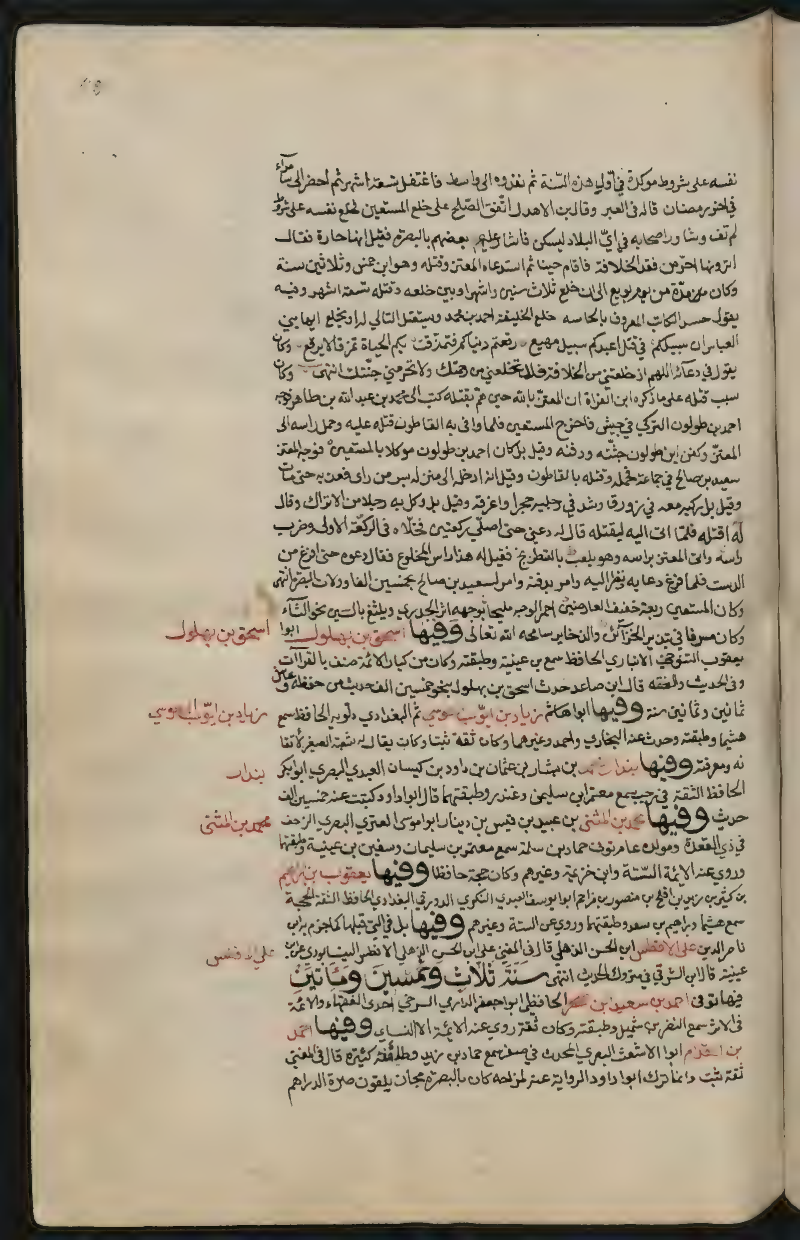 نفسه على شروط موكدة في اول هذه السنة ثم نفذوه الى واسط فاعتقل تسعة اشهر ثم احضر الى سامراء
في اخر رمضان قاله في العبر وقال ابن الاهدل اتفق الصلح على خلع المستعين فخلع نفسه على شروط
لم تف وشاور اصحابه في اي البلاد ليسكن فاشار عليهم بعضهم بالبصرة فقيل انها حارة فقال
اترونها احر من فقد الخلافة فاقام حينا ثم استدعاه المعتز وقتله وهو ابن خمس وثلاثين سنة
وكان من مدة من يوم بويع الى ان خلع ثلاث سنين واشهرا وبين خلعه وقتله تسعة اشهر وفيه
يقول حسن الكاتب المعروف بالحاسه خلع الخليفة احمد بن محمد وسيقتل التالي له او يخلع ايها بني
العباس ان سبيلكم في قتل اعبدكم سبيل مهيع رقعتم دنياكم فتمزقت بكم الحياة تمزقا لا يرقع وكان
يقول في دعائه اللهم اذ خلعتني من الخلافة فلا تخلعني من رحمتك ولا تحرمني جنتك انتهى وكان
سبب قتله على ما ذكره ابن الفرات ان المعتز بالله حين هم بقتله كتب الى محمد بن عبد الله بن طاهر فوجه
احمد بن طولون التركي في جيش فاخرج المستعين فلما وافى به القاطون قتله عليه وحمل راسه الى
المعتز وكفن ابن طولون جثته ودفنه وقيل بل كان احمد بن طولون موكلا بالمستعين فوجه المعتز
سعيد بن صالح في جماعة فحمله وقتله بالقاطون وقيل انه ادخله الى منزله بسر من راى فعذبه حتى مات
وقيل بل ركبه معه في زورق وشد في رجليه حجرا واغرقه وقيل بل وكل به رجلا من الاتراك وقال
له اقتله فلما اتى اليه ليقتله قال له دعني حتى اصلي ركعتين فخلاه في الركعة الاولى وضرب
راسه واتى المعتز براسه وهو يلعب بالشطرنج فقيل له هذا راس المخلوع فقال دعوه حتى افرغ من
الدست فلما فرغ دعا به ونظر اليه وامر بدفنه وامر لسعيد بن صالح بخمسين الفا وولاه البصرة انتهى
وكان المستعين ربعة خفيف العارضين احمر الوجه مليحا بوجهه اثر الجدري ويلثغ بالسين نحو الثاء
وكان مسرفا في تبذير الخزائن والذخاير سامحه الله تعالى وفيها اسحق بن بهلول ابوا
يعقوب التنوخي الانباري الحافظ سمع بن عيينة وطبقته وكان من كبار الائمة صنف بالقراآت
وفي الحديث والفقه قال ابن صاعد حدث اسحق بن بهلول بنحو خمسين الف حديث من حفظه وعاش
ثمانين وثمانين سنة وفيها ابوا هاشم زياد بن ايوب طوسي ثم البغدادي دلويه الحافظ سمع
هشيما وطبقته وحدث عنه البخاري واحمد وغيرهما وكان ثقة ثبتا وكان يقال له شعبة الصغير لاتقا
نه ومعرفته وفيها بندار محمد بن بشار بن عثمان بن داود بن كيسان العبدي البصري ابوا بكر
الحافظ الثقة في رجب سمع معتمر ابن سليمن وغندر وطبقتهما قال ابوا داود كتبت عنه خمسين الف
حدث وفيها محمد بن المثنى بن عبيد بن قيس بن دينار ابوا موسى العنزي البصري الزمن
في ذي القعدة ومولده عام توفي حماد بن سلمة سمع معتمر بن سليمان وسفين بن عيينة وطبقتهما
وروي عنه الايمة الستة وابن خزيمة وغيرهم وكان حجة حافظا وفيها يعقوب بن ابراهيم
بن كثير بن زيد بن افلح بن منصور بن مزاحم ابوا يوسف العبدي النكري الدورقي البغدادي الحافظ الثقة الحجة
سمع هشيما وبراهيم بن سعد وطبقتهما وروي عن الستة وغيرهم وفيها بل في التي قبلها كما جزم به ابن
ناصر الدين على الافطس ابن الحسن الذهلي قال في المغني على ابن الحسن الذهلي الافطس النيسابوري عن ابن
عيينة قال ابن الشرقي متروك الحديث انتهى سنة ثلاث وخمسين ومائتين
فيها توفي احمد بن سعيد بن صخر الحافظ ابوا جعفر الدارمي السرخسي احدى الفقهاء والائمة
في الاثر سمع النضر بن شميل وطبقته وكان ثقة روى عنه الايمة الا النساي وفيها احمد
بن المقدام ابوا الاشعث البصري المحدث في صفر سمع حماد بن زيد وطائفة كثيرة قال في المغني
ثقة ثبت وانما ترك ابوا داود الرواية عنه لمزاحه كان بالبصرة مجان يلقون صرة الدراهم
اسحق بن بهلول
زياد بن ايوب الطوسي
بندار
محمد بن المثنى
على الافطس